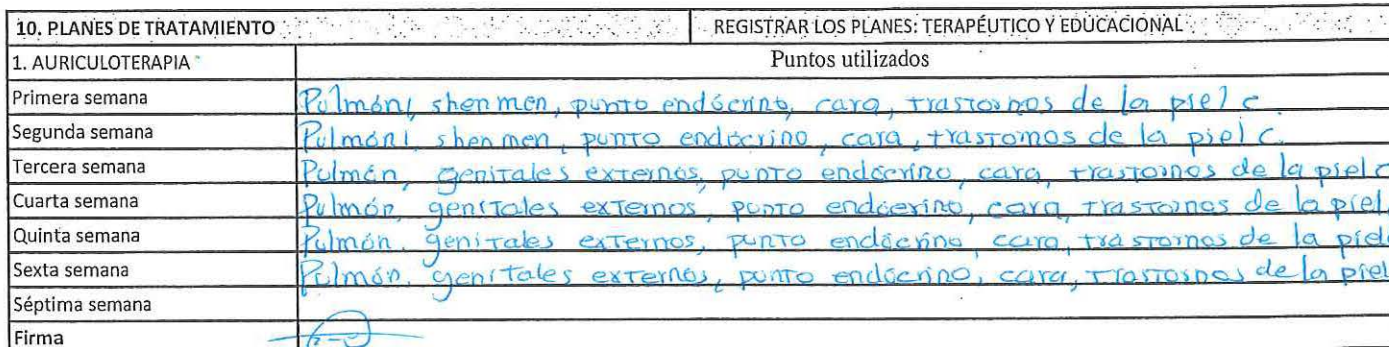 10. PLANES DE TRATAMIENTO REGISTRAR LOS PLANES: TERAPÉUTICO Y EDUCACIONAL
1. AURICULOTERAPIA Puntos utilizados
Primera semana Pulmón, shen men, punto endócrino, cara, trastornos de la piel c.
Segunda semana Pulmón, shen men, punto endócrino, cara, trastornos de la piel c.
Tercera semana Pulmón, genitales externos, punto endócrino, cara, trastornos de la piel c
Cuarta semana Pulmón, genitales externos, punto endócrino, cara, trastornos de la piel
Quinta semana Pulmón, genitales externos, punto endócrino, cara, trastornos de la piel
Sexta semana Pulmón, genitales externos, punto endócrino, cara, trastornos de la piel
Séptima semana
Firma